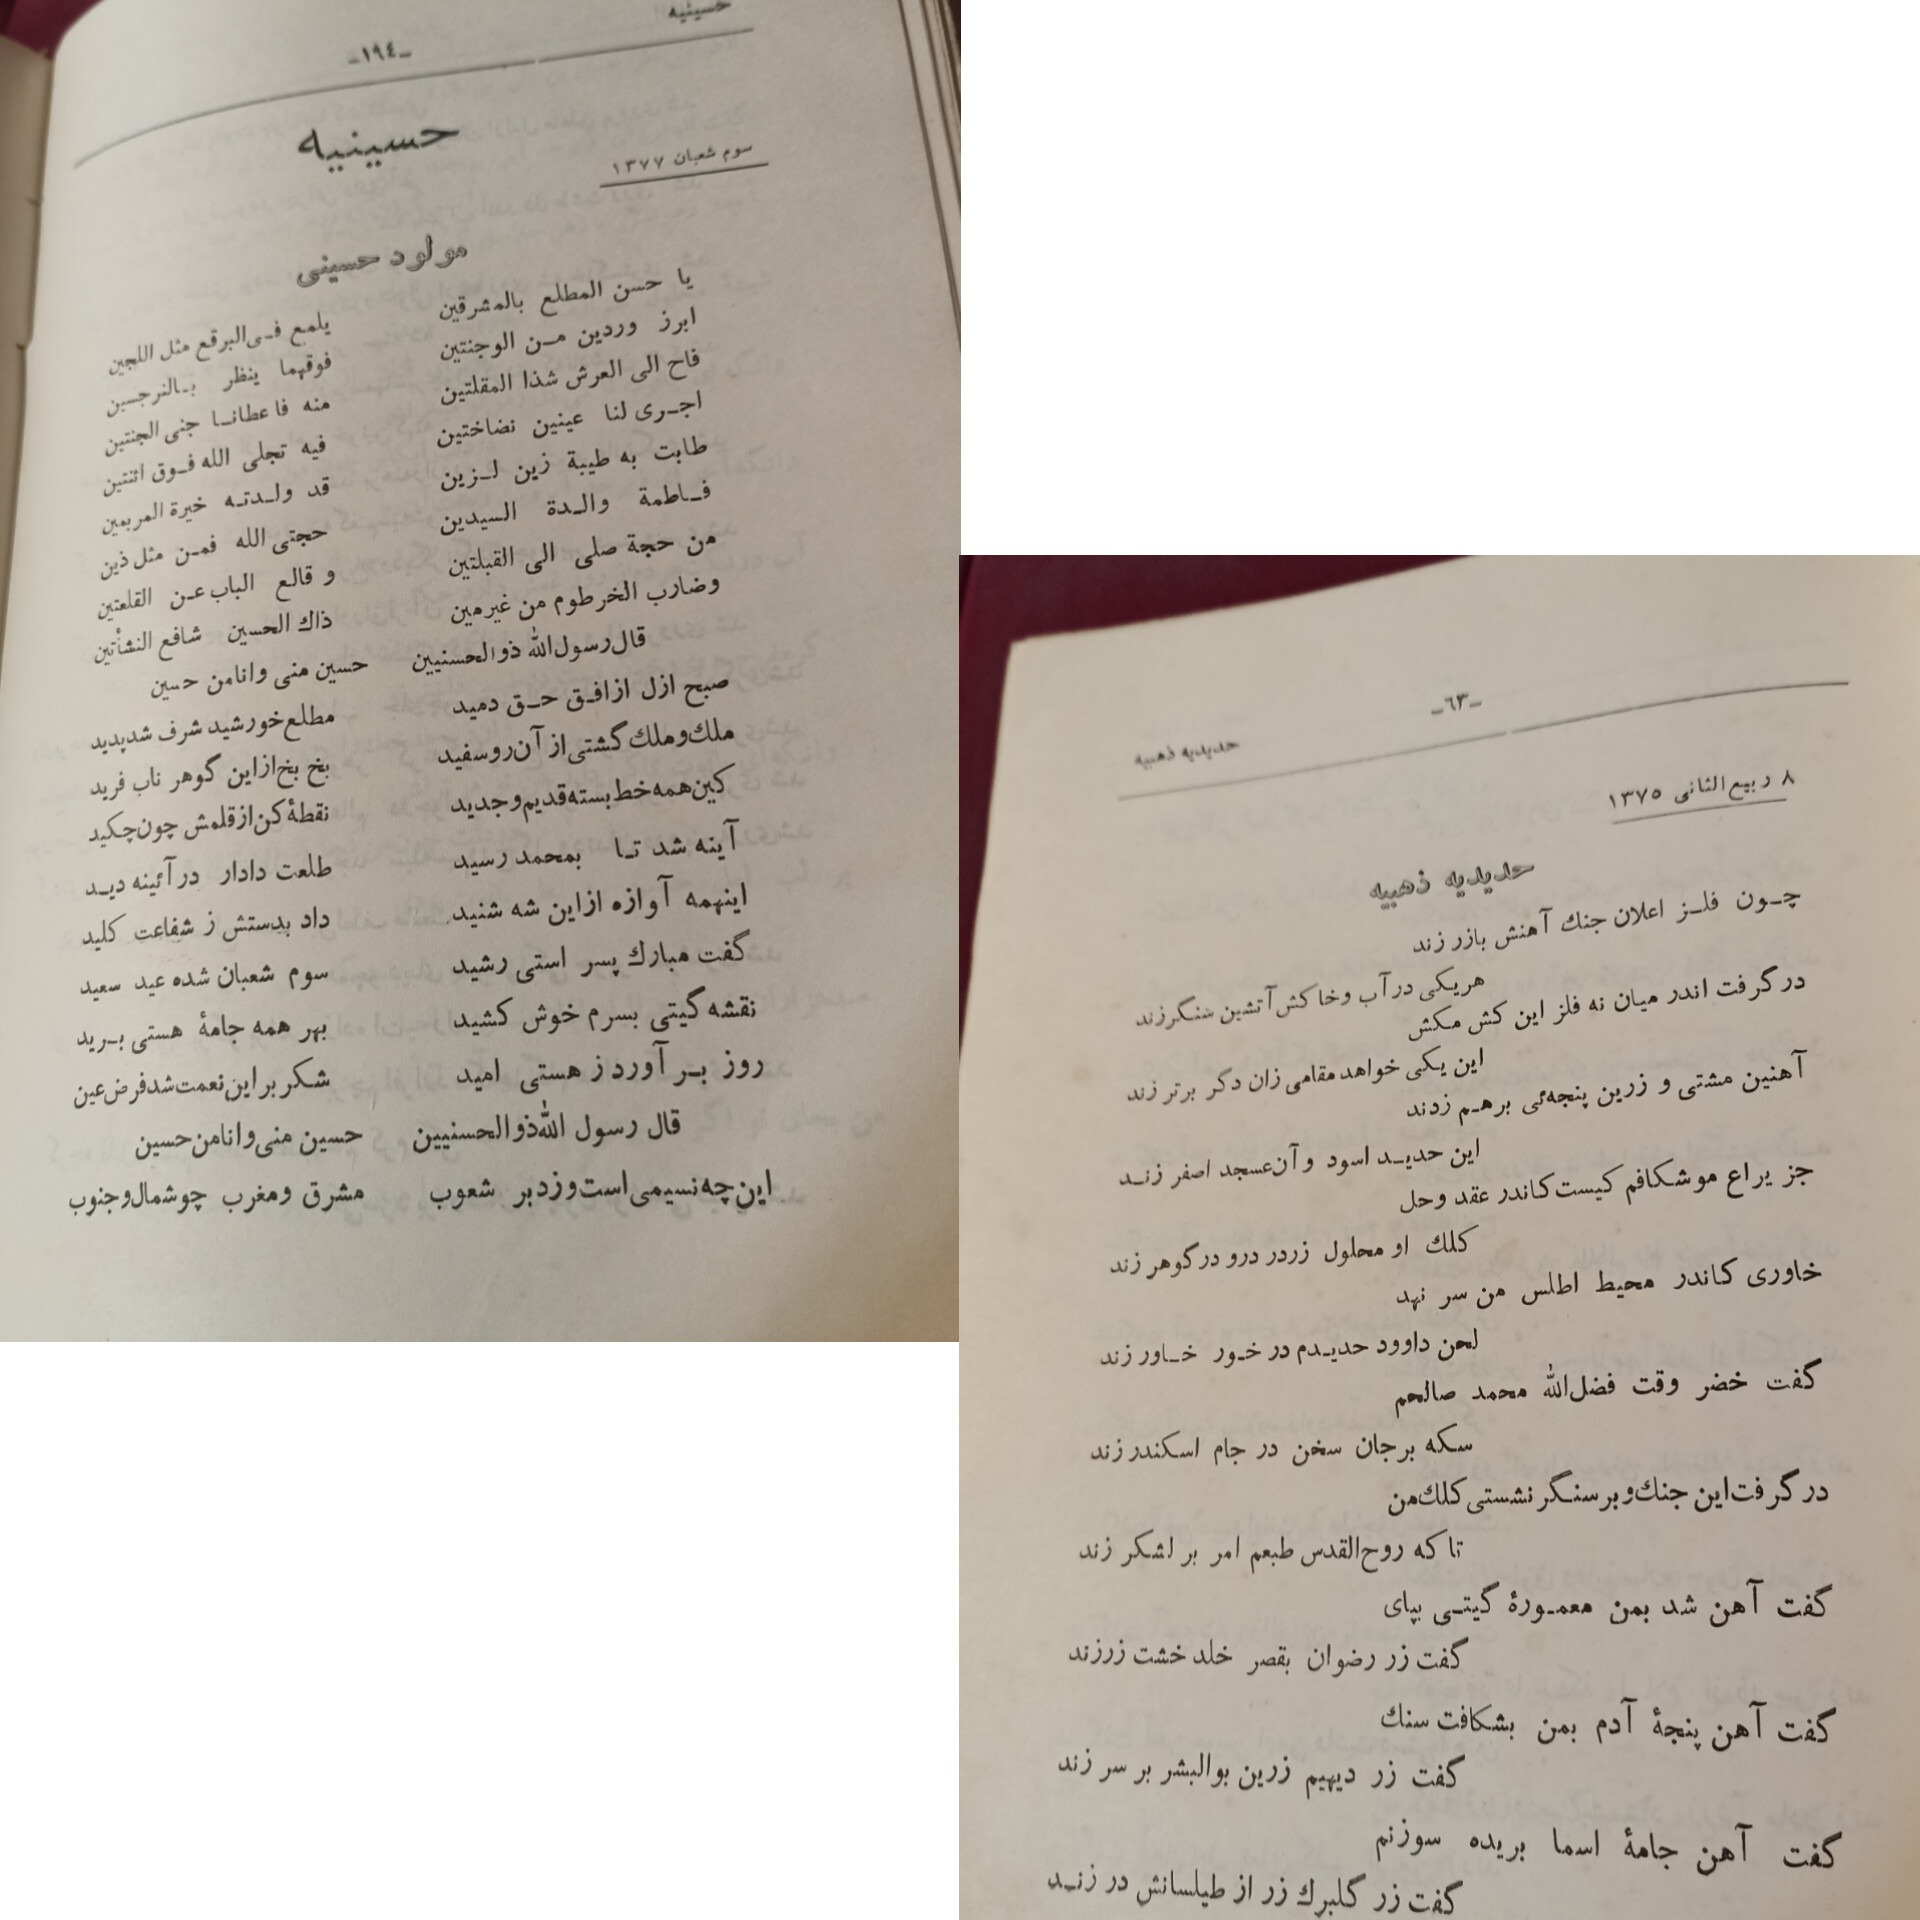 حسینیه
-۱۹٤-
حسینیه
سوم شعبان ۱۳۷۷
مولود حسینی
یا حسن المطلع بالمشرقین یلمع فـی البرقع مثل اللجین
ابرز وردین مـن الوجنتین فوقهما ینظر بـالنرجسین
فاح الی العرش شذا المقلتین منه فاعطانـا جنی الجنتین
اجـری لنا عینین نضاختین فیه تجلی الله فـوق اثنتین
طابت به طیبة زین لـزین قد ولـدتـه خیرة المریمین
فـاطمة والـدة السیدین حجتی الله فمـن مثل ذین
من حجة صلی الی القبلتین و قالع الباب عـن القلعتین
وضارب الخرطوم من غیرمین ذاك الحسین شافع النشأتین
قال رسول الله ذوالحسنیین حسین منی وانامن حسین
صبح ازل ازافـق حـق دمید مطلع خورشید شرف شدپدید
ملك وملك گشتی از آن روسفید بخ بخ ازاین گوهر ناب فرید
کین همه خط بسته قدیم وجدید نقطهٔ کن ازقلمش چون چکید
آینه شد تـا بمحمد رسید طلعت دادار در آئینه دیـد
اینهمه آوازه ازاین شه شنید داد بدستش ز شفاعت کلید
گفت مبارك پسر استی رشید سوم شعبان شده عید سعید
نقشه گیتی بسرم خوش کشید بهر همه جامهٔ هستی بـرید
روز بـر آورد ز هستی امید شکر بر این نعمت شدفرض عین
قال رسول الله ذوالحسنیین حسین منی و انامن حسین
این چه نسیمی است وزد بر شعوب مشرق ومغرب چوشمال و جنوب
-٦۳-
حدیدیه ذهبیه
۸ ربیع الثانی ۱۳۷۵
حدیدیه ذهبیه
چـون فلـز اعلان جنك آهنش بازر زند
هریکی در آب وخاکش آتشین سنگرزند
در گرفت اندر میان نه فلز این کش مکش
این یکی خواهد مقامی زان دگر برتر زند
آهنین مشتی و زرین پنجه‌ئی برهـم زدند
این حدیـد اسود و آن عسجد اصفر زنـد
جز یراع موشکافم کیست کاندر عقد وحل
کلك او محلول زردر درو در گوهر زند
خاوری کاندر محیط اطلس من سر نهد
لحن داوود حدیـدم در خـور خـاور زند
گفت خضر وقت فضل الله محمد صالحم
سکه برجان سخن در جام اسکندر زند
در گرفت این جنك و بر سنـگر نشستی کلك من
تا که روح القدس طبعم امر بر لشکر زند
گفت آهن شد بمن معمـورهٔ گیتـی بپای
گفت زر رضوان بقصر خلد خشت زرزند
گفت آهن پنجهٔ آدم بمن بشکافت سنك
گفت زر دیهیم زرین بوالبشر بر سر زند
گفت آهن جامهٔ اسما بریده سوزنم
گفت زر گلبرك زر از طیلسانش در زنـد